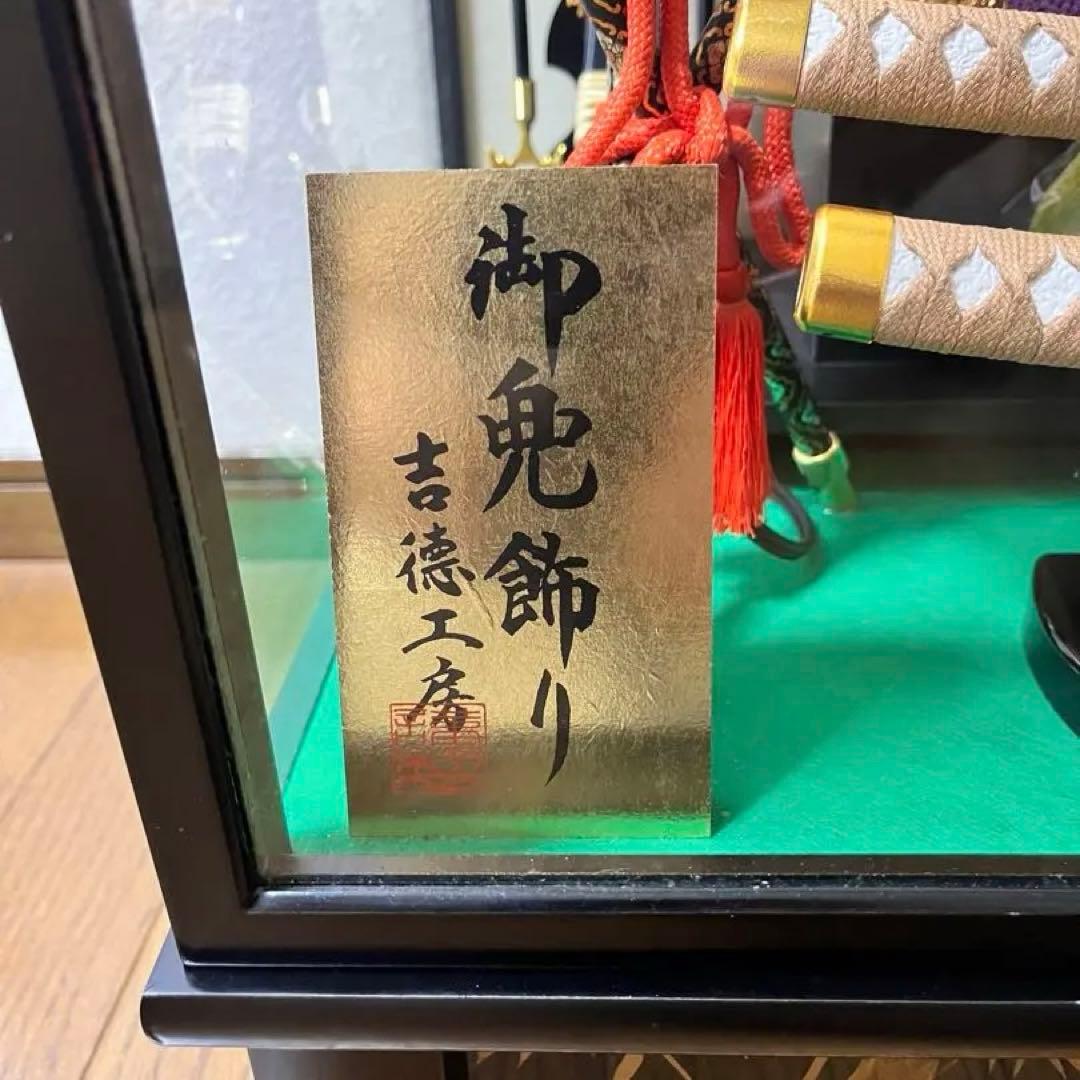 御兜飾り
吉德工房